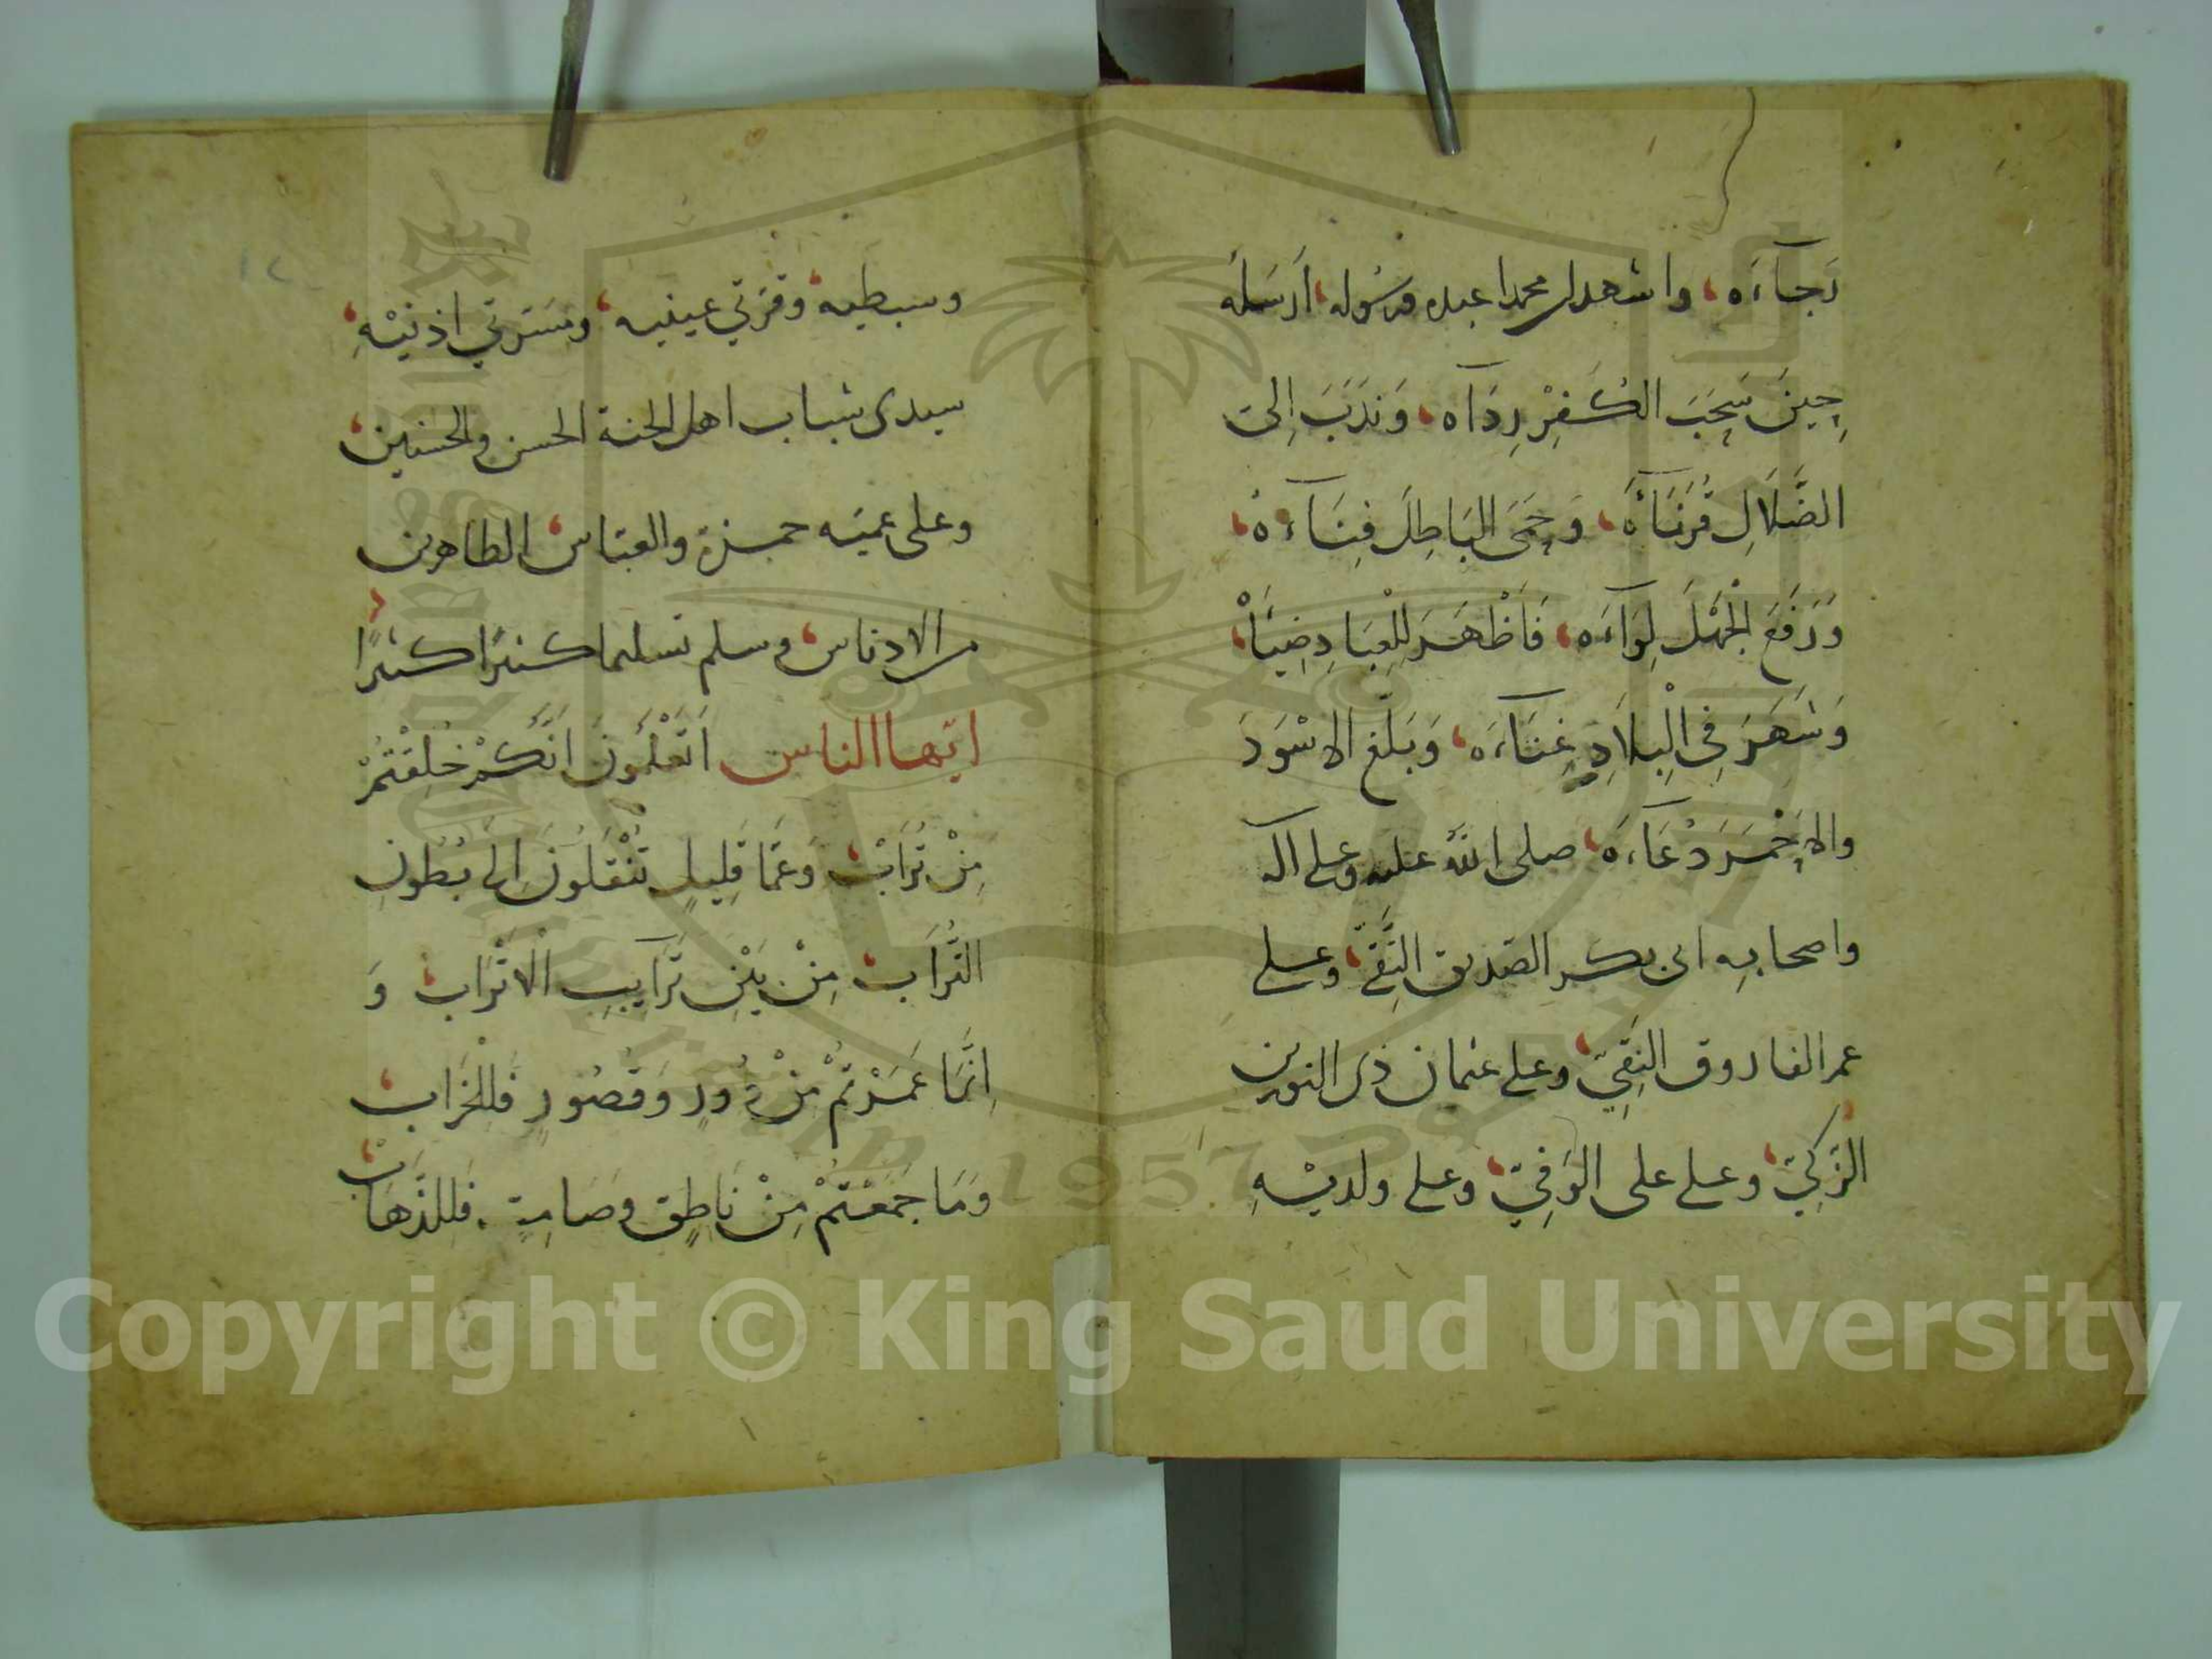 رَجآءَه، واشهد ان محمدا عبده ورسوله، اَرْسَلَه
حِينَ سَحِبَ الكُفِرْ رِدَآه، وَنَدَبَ اِلىَ
الضَّلَالِ قُرَنَآءَهُ، وَحِمَى البَاطِلَ فِنَآءَهُ،
وَرَفَعَ الْجَهْلَ لِوَآءَه، فَاَظْهَرَ لِلْعِبَادِ ضِيَآَهْ،
وَشَهَرَ فِي الْبِلَادِ غِنَآءَه، وَبَلَّغ الاسْوَدَ
والاحْمَرَ دُعَآءَهَ، صلى الله عليه وعلى آله
واصحابِه ابى بكر الصّديق التَّقيّ، وعلى
عمر الفاروق النَقِيّ، وعلى عثمان ذى النورين
الزَكِيّ، وعلى على الوَفِيّ، وعلى ولديْهِ
وسبطيه، وقرَتي عينيه، ومسَرتي اذنَيْهِ،
سيدى شباب اهل الجنة الحسن والحسَين،
وعلى عميَه حمزة والعبّاس، الطاهرين
من الادناس، وسلم تسليما كثيرًا كثيرًا
ايّها الناس اَتَعْلَمُونَ اَنَّكُمْ خُلِقْتُمْ
مِنْ تُرَابْ، وَعَمَّا قَلِيلٍ تُنْقَلُونَ اِلى بُطُونِ
التُّرَاب، مِنْ بَيْنِ تَرَآيِبِ الْاَتْرَاب، وَ
اِنَّمَا عَمَرْتُمْ مِنْ دُورٍ وَقُصُورٍ فَلِلْخَرَاب،
وَمَا جَمَعْتُمْ مِنْ نَاطِقٍ وصَامِتٍ . فَلِلذَّهَابْ،
١٢
Copyright © King Saud University
1957